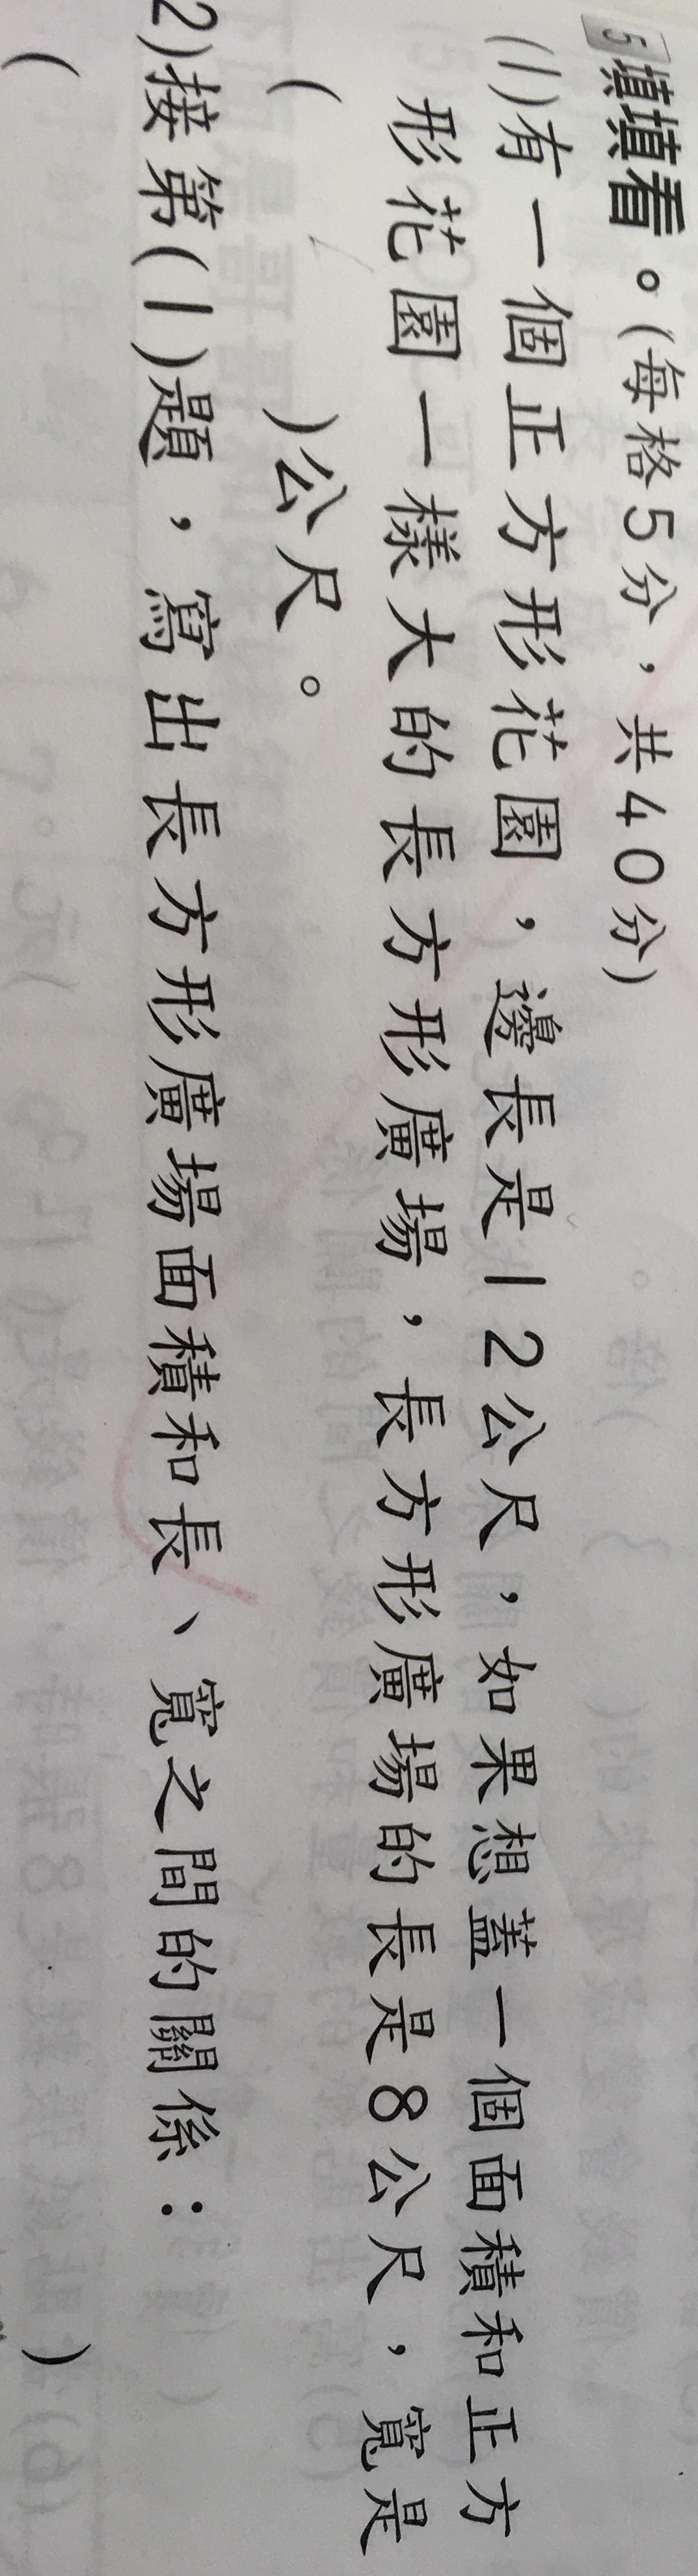 5 填填看。(每格5分，共40分)
(1)有一個正方形花園，邊長是12公尺，如果想蓋一個面積和正方
形花園一樣大的長方形廣場，長方形廣場的長是8公尺，寬是
(　　　)公尺。
2)接第(1)題，寫出長方形廣場面積和長、寬之間的關係：
(　　　　　　　　　　)